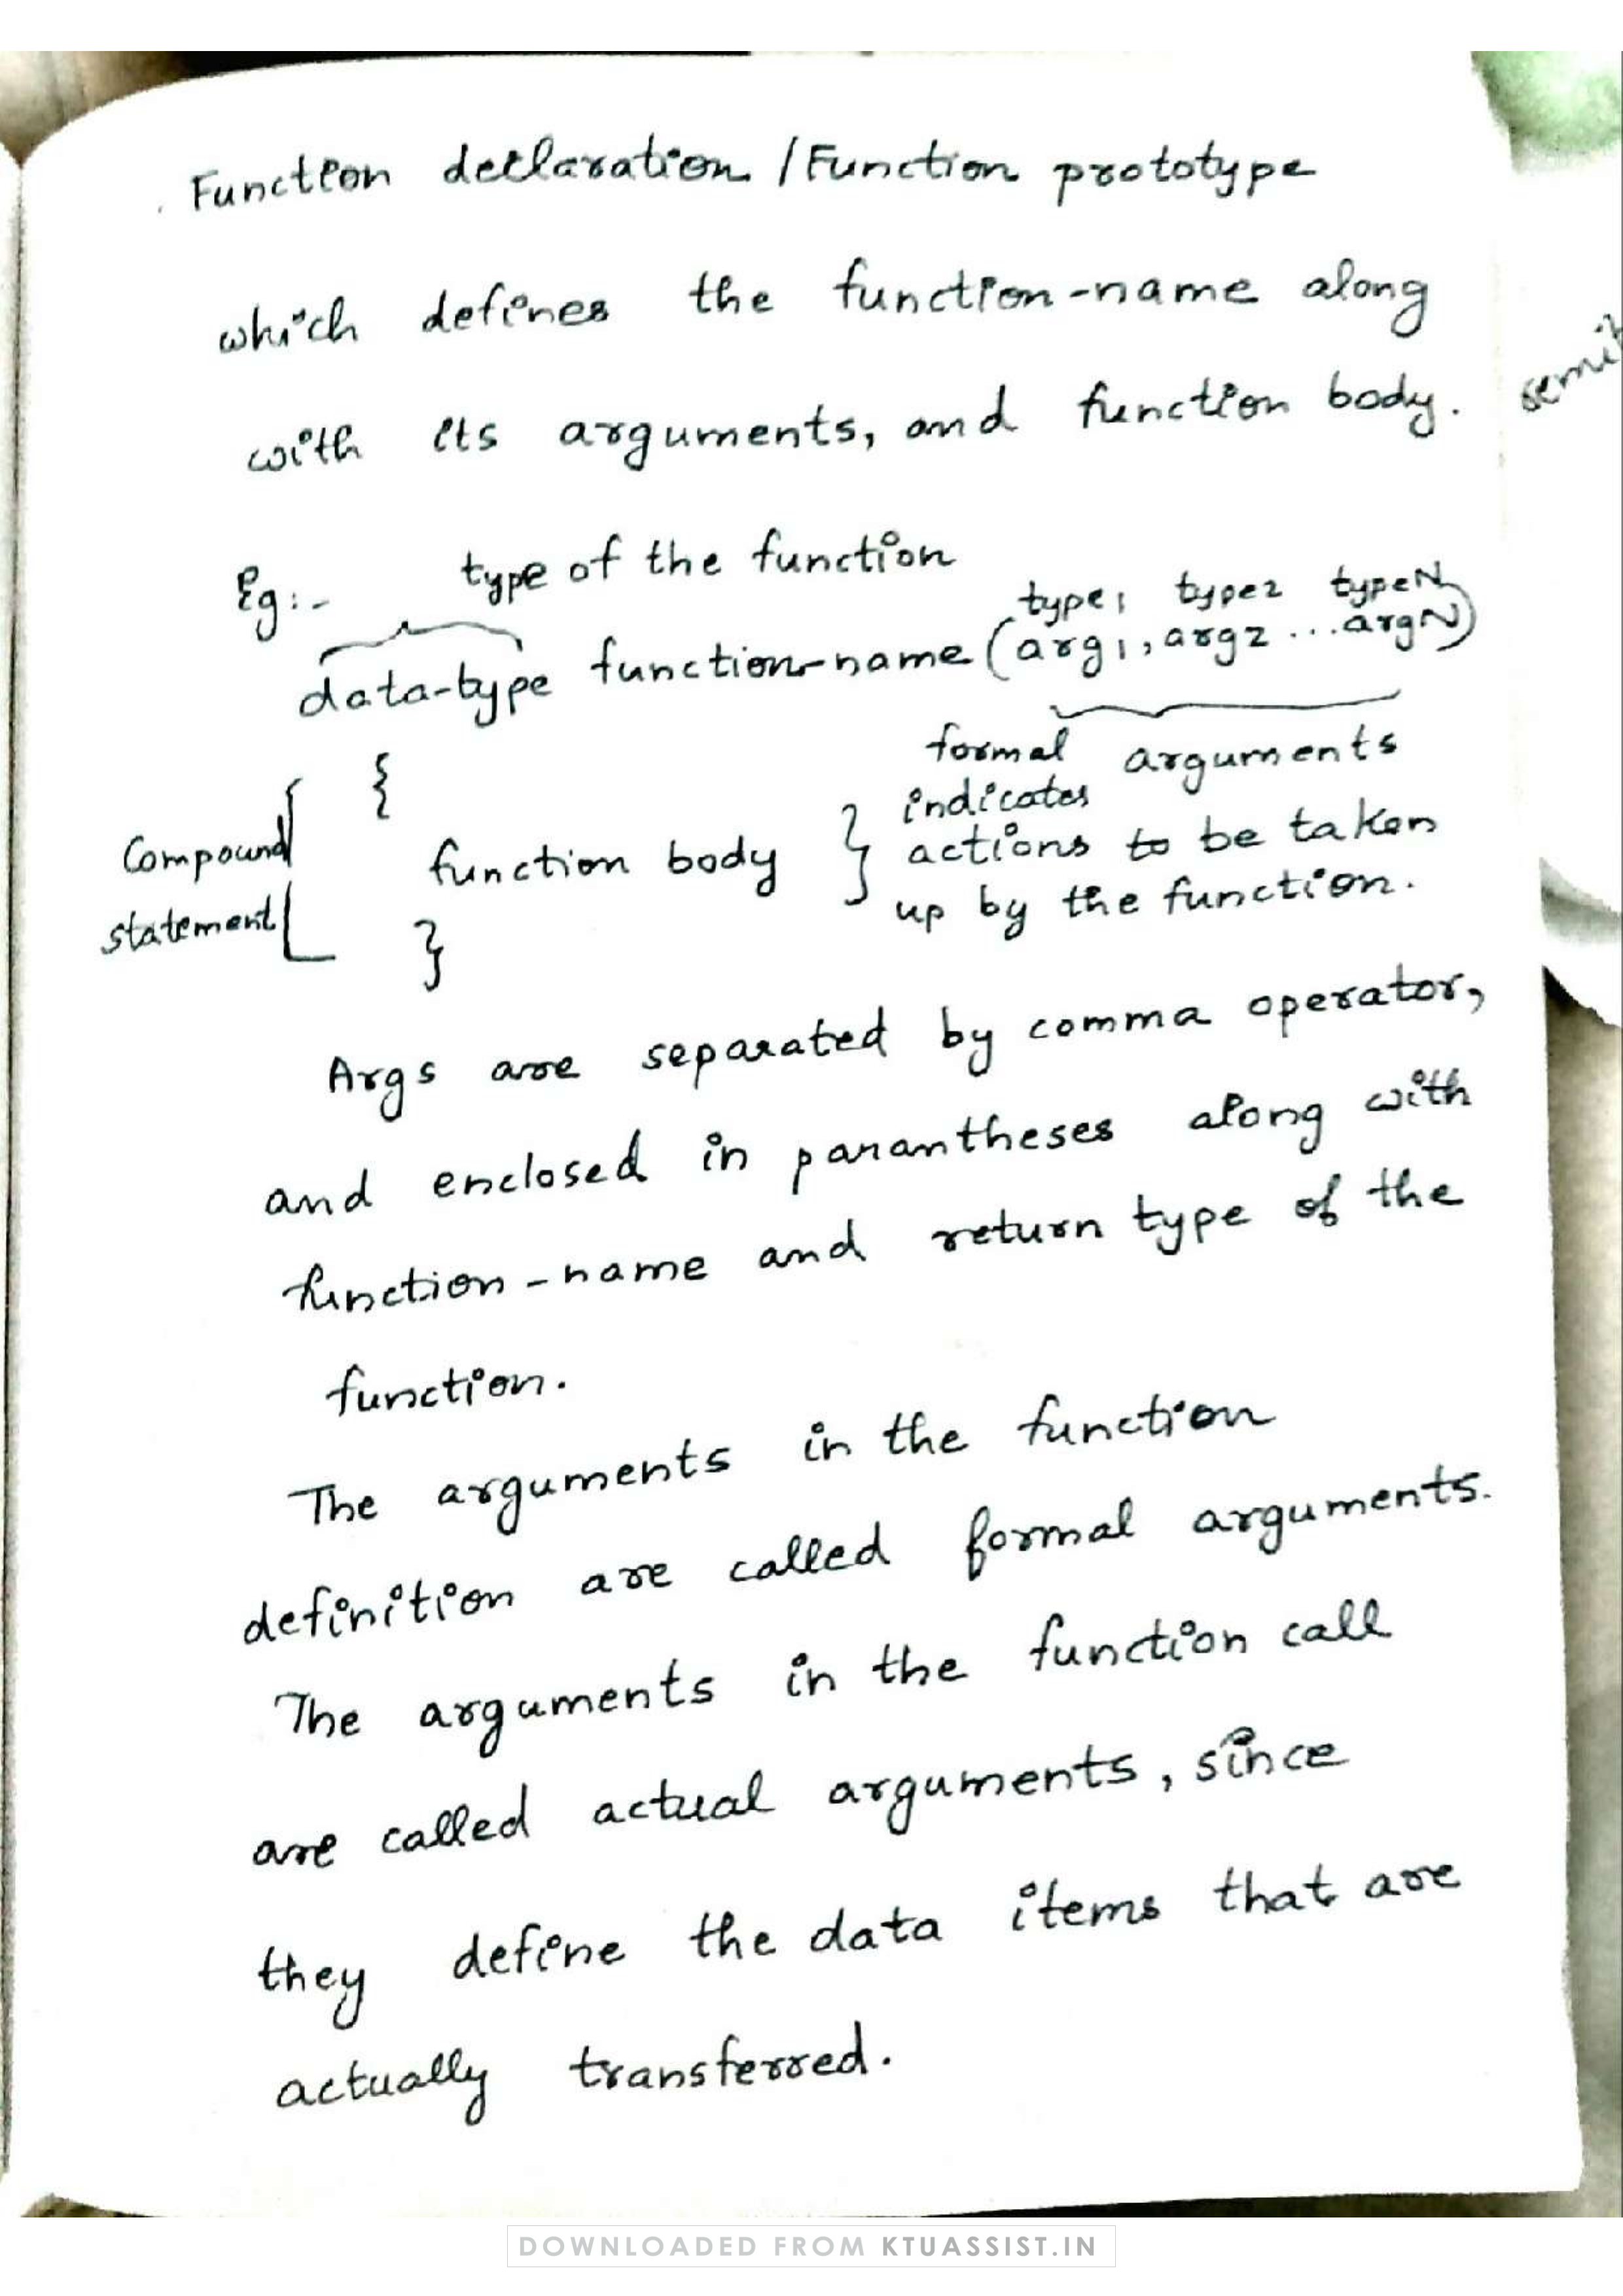 Function declaration / Function prototype
which defines the function-name along
with its arguments, and function body.
semi
Eg:- type of the function
type1 type2 typeN
data-type function-name (arg1, arg2 ... argN)
formal arguments
{
Compound
statement
function body } indicates
actions to be taken
up by the function.
}
Args are separated by comma operator,
and enclosed in parantheses along with
function-name and return type of the
function.
The arguments in the function
definition are called formal arguments.
The arguments in the function call
are called actual arguments, since
they define the data items that are
actually transferred.
DOWNLOADED FROM KTUASSIST.IN